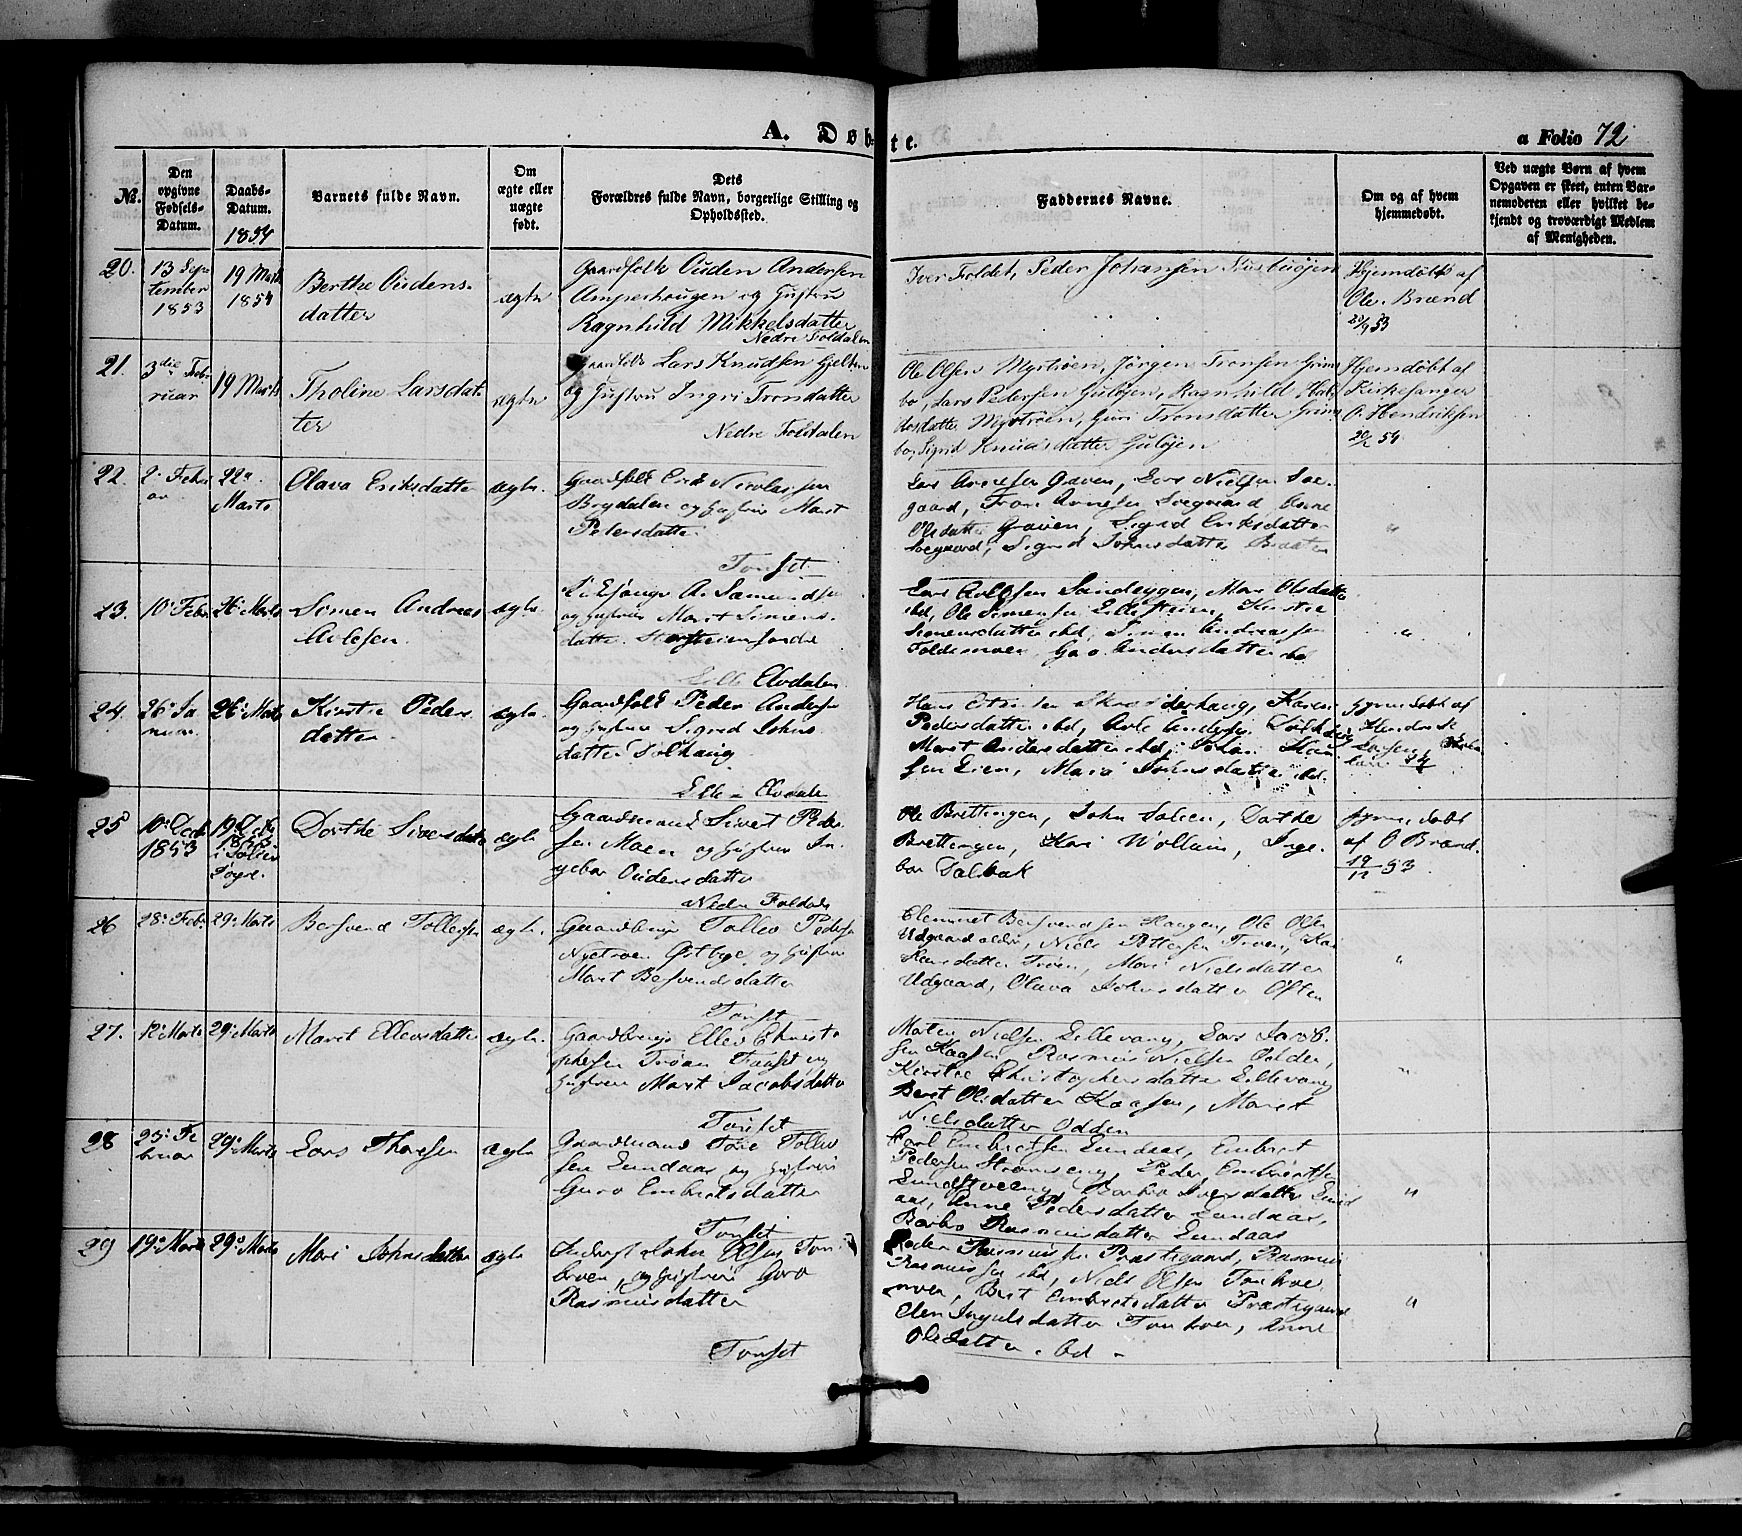 A. Døbte.
a Folio 72
No.
Den opgivne Fødsels-Datum.
Daabs-Datum. 1854
Barnets fulde Navn.
Om ægte eller uægte født.
Dets Forældres fulde Navn, borgerlige Stilling og Opholdssted.
Faddernes Navne.
Om og af hvem hjemmedøbt.
Ved uægte Børn af hvem Opgaven er skeet, enten Barnemoderen eller hvilket bekjendt og troværdigt Medlem af Menigheden.
20.
13 September 1853
19 Marts 1854
Berthe Oudensdatter
ægte
Gaardfolk Ouden Andersen
Amperhaugen og Hustru
Ragnhild Mikkelsdatter
Nedre Foldalen
Iver Foldet, Peder Johansen
Hjemdøbt af
Ole Brænd
20/9 53
21.
3die Februar
19 Marts
Tholine Larsdatter
ægte
Lars Knudsen Gjelten
og Hustru Ingri Tronsdatter
Nedre Foldalen
Ole Olsen Mystrøen, Jørgen Tronsen Grimbo, Lars Pedersen Guløjen, Ragnhild
Mystrøen, Guri Tronsdatter Grimbo, Sigrid Knudsdatter Guløjen
Hjemdøbt af
Kirkesanger
O. Hendriksen
20/2 54
22.
2. Februar
22de Marts
Olava Eriksdatter
ægte.
Gaardfolk Erik Nicolaysen
Brydalen og Hustru Marit
Petersdatter
Tønset
Lars Arnesen Gaven, Lars Nielsen Soegaard, Tron Arnesen Soegaard,
Olsdatter Graven, Sigrid Eriksdatter
Soegaard, Sigrid Johnsdatter Braaten
"
23.
10de Febr
26de Marts
Simen Andreas
Avlesen.
ægte.
A. Samundsen
og Hustru Marit Simensdatter
Lille Elvdalen
Lars Avlesen Sandeggen, Mari Olsdatter
ibd, Ole Simensen Lillesteien, Kirstie
Simensdatter ibd, Simen Andreassen
Foldemoen, Andersdatter ibd
"
24.
26de Januar
26de Marts
Kirstie Pedersdatter
ægte.
Gaardfolk Peder Andersen
og Hustru Sigrid Johnsdatter Solhaug
Lille Elvdalen
Hans Skræderhaug, Karen
Pedersdatter ibd, Avle Andersen Solhaug
Marit Andersdatter ibd, Hansen Lien, Mari Johnsdatter ibd.
hjemdøbt af
25
10de Decb 1853
19de Decb 1853
i Sollien Sogn.
Dorthe Siversdatter
ægte
Gaardmand Sivert Pedersen Moen og Hustru Ingebor Oudensdatter
Nedre Foldalen
Ole Brettingen, John Dalen, Dorthe
Brettingen, Kari Wollum, Ingebor Dalbak
hjemmedøbt
af O Brænd.
19/12 53
26
28de Febr
29de Marts
Bersvend Tollefsen
ægte.
Gaardbruger Tollev Pedersen
Nytrøen Østbye og Hustru
Marit Bersvendsdatter
Tønset
Clemmet Bersvendsen Haugen, Ole Olsen
Udgaard, Niels Pettersen Trøen,
Trøen, Mari Nielsdatter
Udgaard, Olava Johnsdatter Østen
"
27.
12te Marts
29de Marts
Marit Ellevsdatter
ægte.
Gaardbruger Ellev Christophersen Trøan Fanset og
Hustru Marit Jacobsdatter
Tønset
Morten Nielsen Lillevang, Lars Jacobsen Kaasen, Rasmus Nielsen Odden,
Kirstie Christophersdatter Lillevang
Berit Olsdatter Kaasen, Marit
Nielsdatter Odden
"
28
25de Februar
29de Marts
Lars Thoresen
ægte
Gaardmand Tore Tollevsen Lundaas og Hustru
Guro Embretsdatter
Tønset
Carl Embretsen Lundaas, Embret
Pedersen Strømseng, Peder Embretsen
Lundstveeng, Barbro Iversdatter Lundaas, Anne Pedersdatter Lundaas,
Barbo Rasmusdatter Lundaas
"
29
19de Marts
29de Marts
Mari Johnsdatter
ægte
John Olsen Tonbroen, og Hustru Goro
Rasmusdatter
Tønset
Peder Rasmussen Præstegaard, Rasmus
Rasmussen ibd, Niels Olsen Tonbroemoen, Berit Embretsdatter Præstegaard
Elen Ingulsdatter Tonbroen, Anne
Olsdatter ibd
"